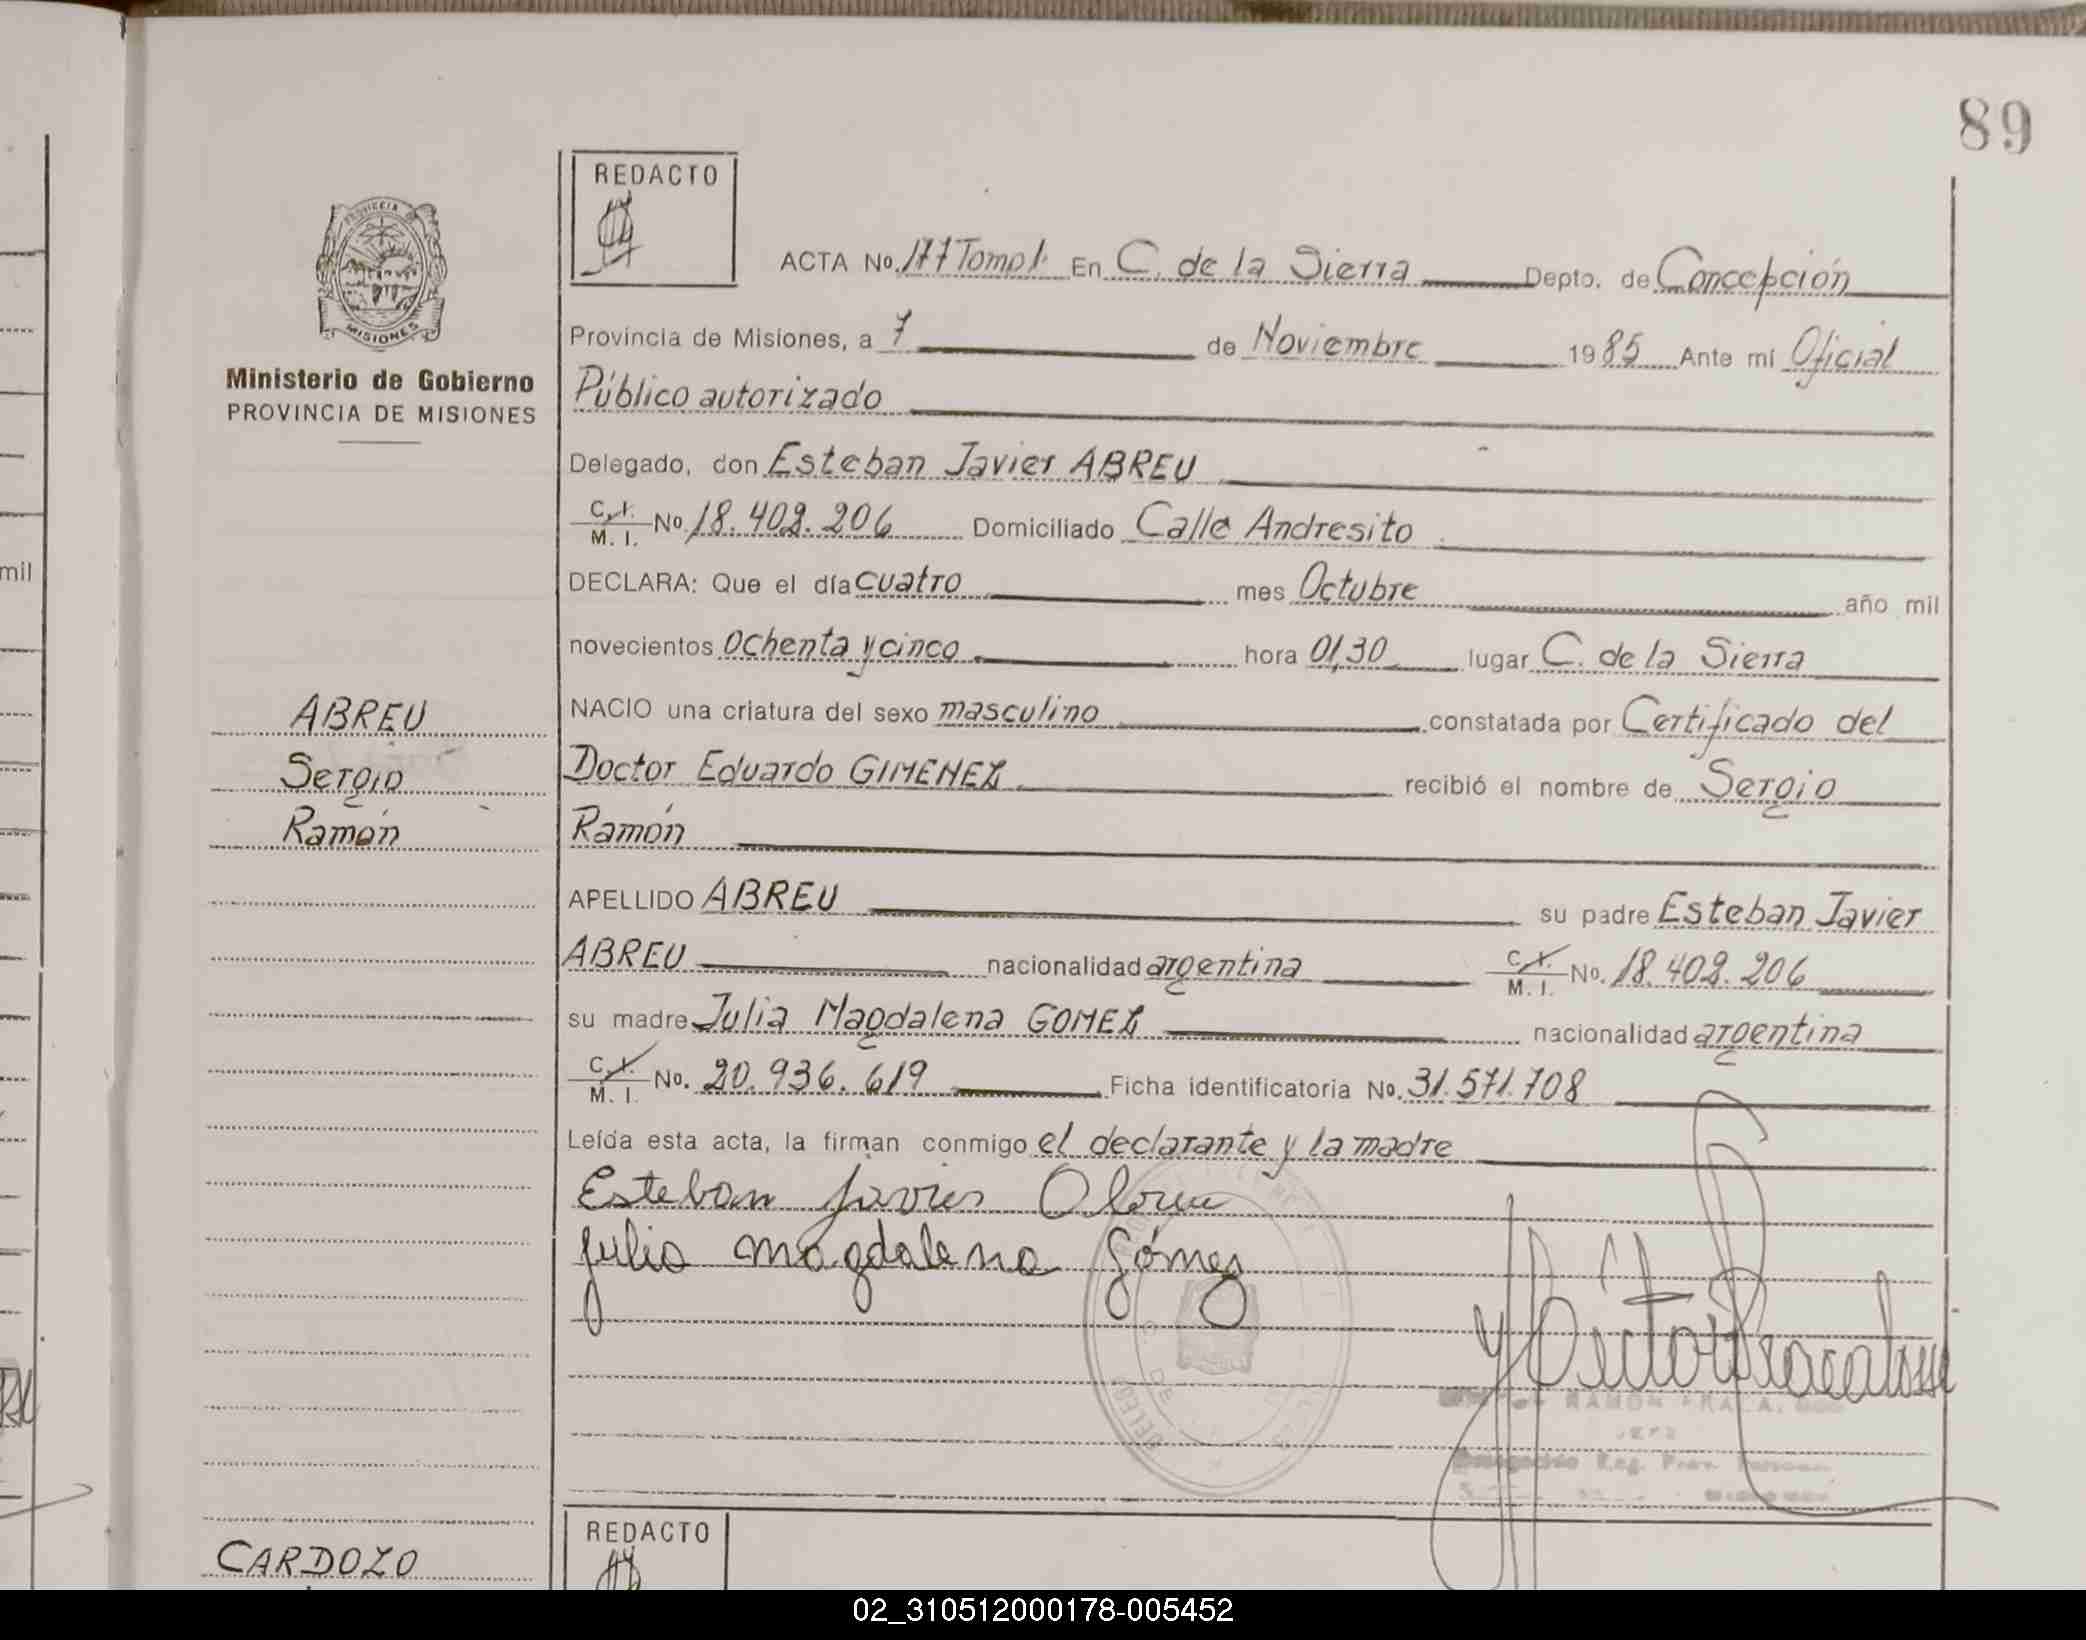 89
REDACTO
PROVINCIA
MISIONES
Ministerio de Gobierno
PROVINCIA DE MISIONES
ACTA No. 177 Tomo I. En C. de la Sierra Depto. de Concepción
Provincia de Misiones, a 7 de Noviembre 1985 Ante mí Oficial
Público autorizado
Delegado, don Esteban Javier ABREU
C. I. M. I. No. 18.402.206 Domiciliado Calle Andresito
DECLARA: Que el día cuatro mes Octubre año mil
mil
novecientos ochenta y cinco hora 01,30 lugar C. de la Sierra
ABREU
NACIO una criatura del sexo masculino constatada por Certificado del
Sergio
Doctor Eduardo GIMENEZ recibió el nombre de Sergio
Ramón
Ramón
APELLIDO ABREU su padre Esteban Javier
ABREU nacionalidad argentina C. I. M. I. No. 18.402.206
su madre Julia Magdalena GOMEZ nacionalidad argentina
C. I. M. I. No. 20.936.619 Ficha identificatoria No. 31.571.708
Leída esta acta, la firman conmigo el declarante y la madre
Esteban Javier Abreu
Julia Magdalena Gómez
REDACTO
CARDOZO
02_310512000178-005452